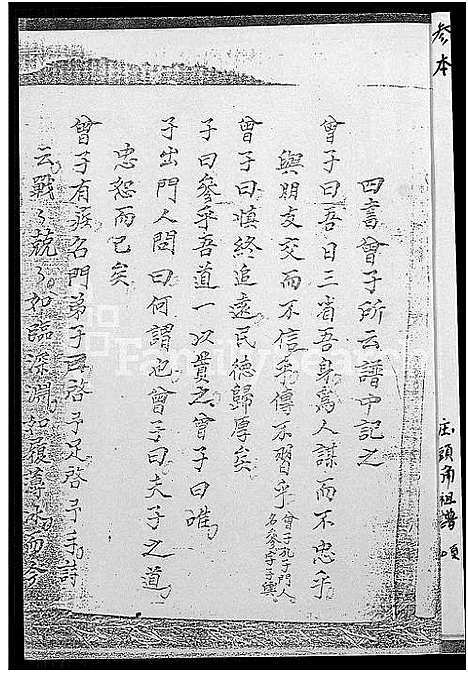 參本
庄頭角祖譜
四書曾子所云譜中記之
曾子曰吾日三省吾身為人謀而不忠乎
與朋友交而不信乎傳不習乎曾子孔子門人名參字子輿
曾子曰慎終追遠民德歸厚矣
子曰參乎吾道一以貫之曾子曰唯
子出門人問曰何謂也曾子曰夫子之道
忠恕而已矣
曾子有疾召門弟子曰啓予足啓予手詩
云戰々兢々如臨深淵如履薄氷而今
FamilySearch